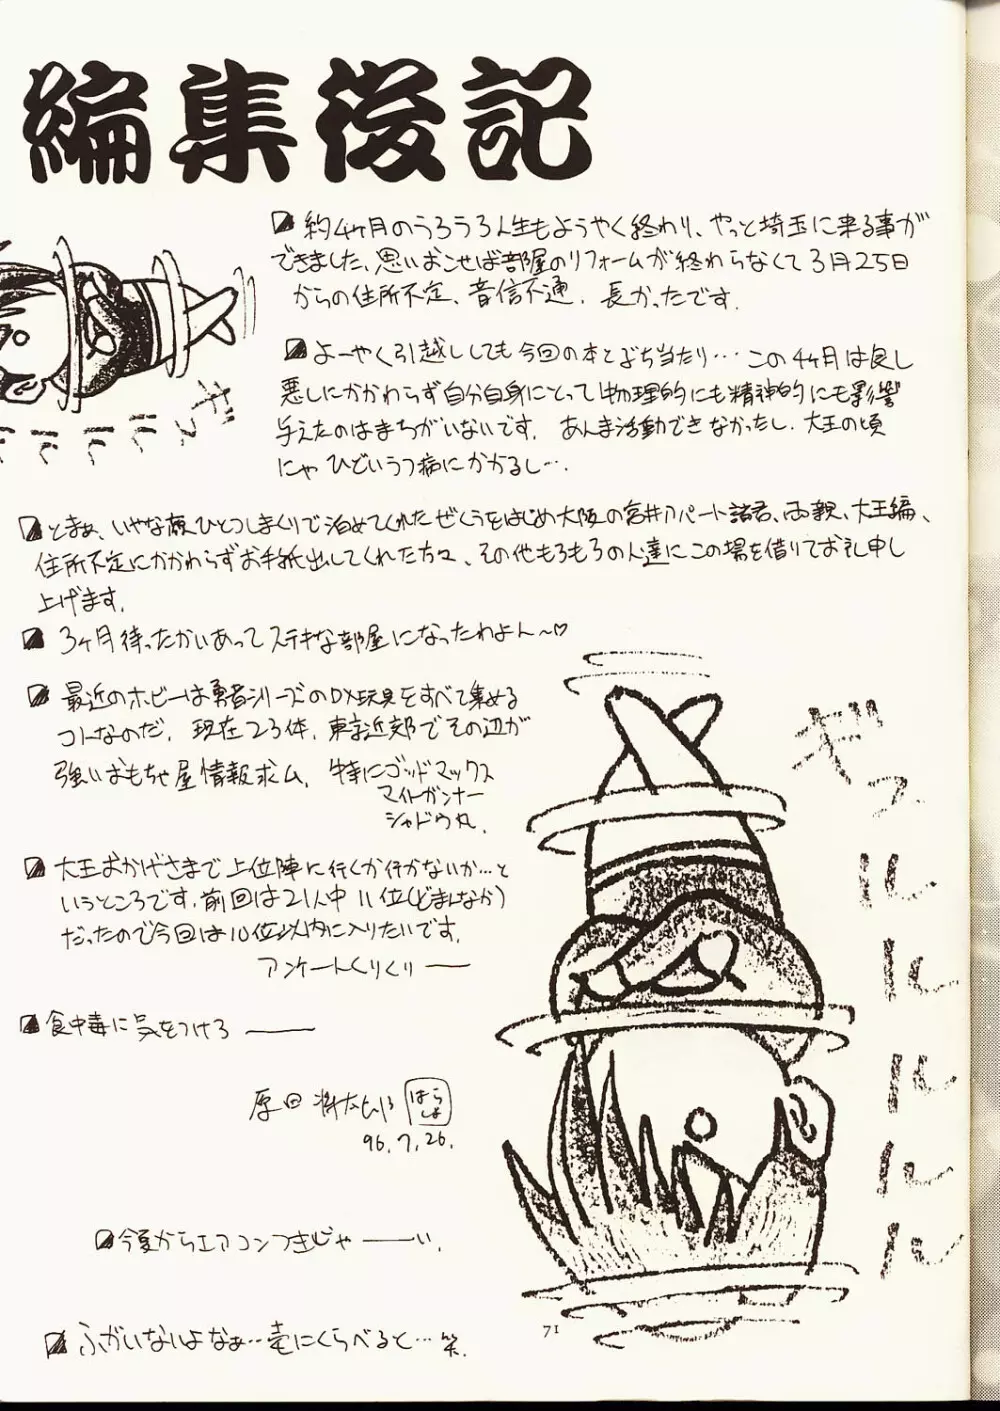 編集後記
約4ヶ月のうろうろ人生もようやく終わり、やっと埼玉に来る事が
できました、思いおこせば部屋のリフォームが終わらなくて3月25日
からの住所不定、音信不通、長かったです.
よーやく引越ししても今回の本とぶち当たり…この4ヶ月は良し
悪しにかかわらず自分自身にとって物理的にも精神的にも影響
与えたのはまちがいないです. あんま活動できなかったし、大王の頃
にゃひどいうつ病にかかるし….
とまぁ、いやな顔ひとつしまくりで泊めてくれたぜくうをはじめ大阪の宮井アパート諸君、両親、大王編、
住所不定にかかわらずお手紙出してくれた方々、その他もろもろの人達にこの場を借りてお礼申し
上げます.
3ヶ月待ったかいあってステキな部屋になったわよん〜♡
最近のホビーは勇者シリーズのDX玩具をすべて集める
コトなのだ. 現在23体. 東京近郊でその辺が
強いおもちゃ屋情報求ム. 特にゴッドマックス
マイトガンナー
シャドウ丸.
大王おかげさまで上位陣に行くか行かないか…と
いうところです. 前回は21人中11位(どまんなか)
だったので今回は10位以内に入りたいです.
アンケートくりくりー
食中毒に気をつけろ——
原田将太郎 はらしょ
96.7.26.
今夏からエアコンつきじゃ——い.
ふがいないよなぁ…壱にくらべると…笑.
ギュルルルルル
71